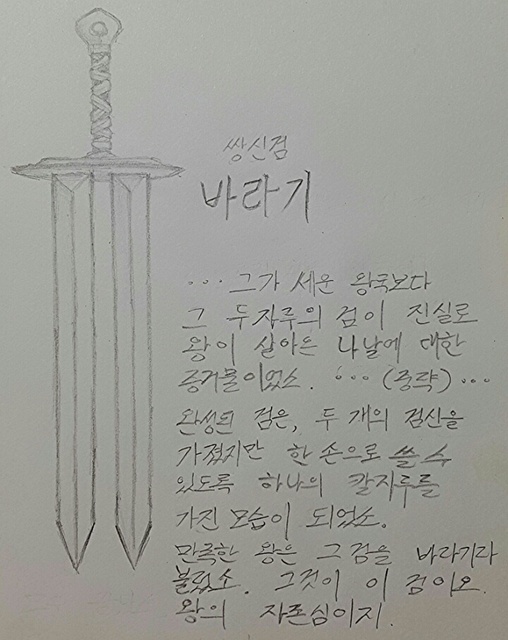 쌍신검
바라기
··· 그가 세운 왕국보다
그 두자루의 검이 진실로
왕이 살아온 나날에 대한
증거물이었소. ··· (중략) ···
완성된 검은, 두 개의 검신을
가졌지만 한 손으로 쓸 수
있도록 하나의 칼자루를
가진 모습이 되었소.
만족한 왕은 그 검을 바라기라
불렀소. 그것이 이 검이오.
왕의 자존심이지.